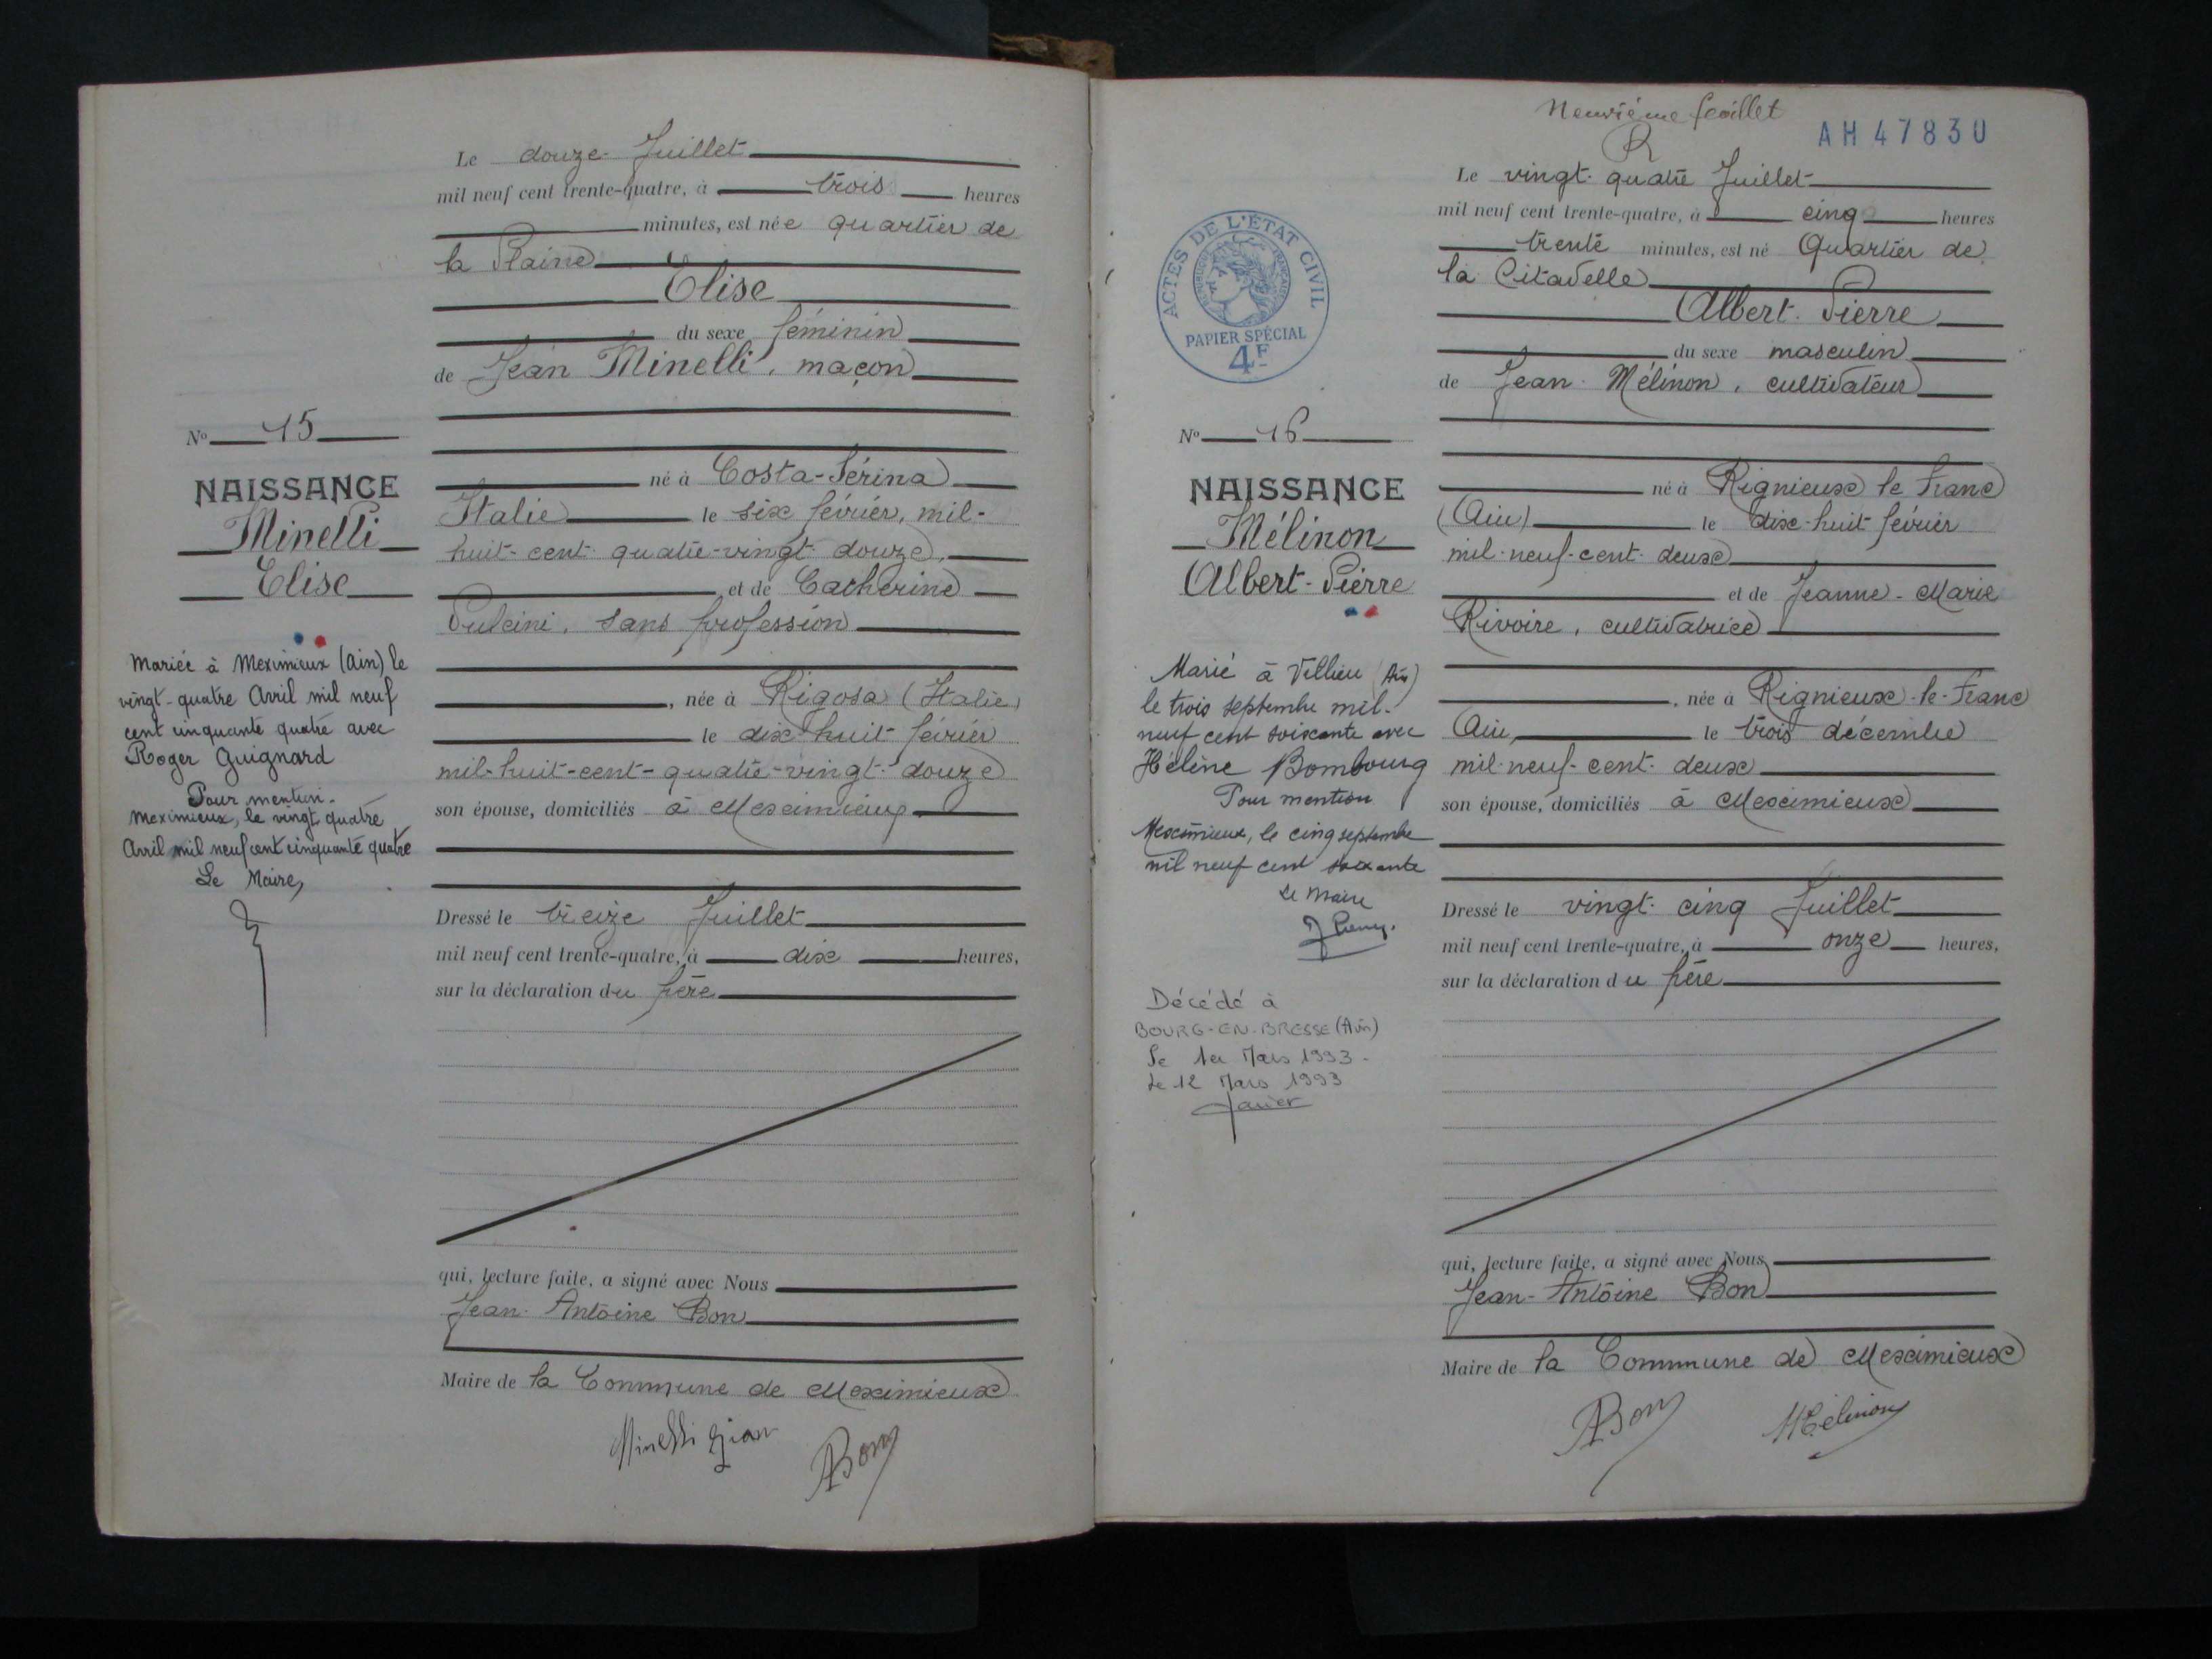 Le douze Juillet
mil neuf cent trente-quatre, à trois heures
minutes, est née quartier de
la Plaine
Elise
du sexe féminin
de Jean Minelli, maçon
né à Costa-Sérina
Italie le six février, mil-
huit-cent quatre-vingt douze,
et de Catherine
Pulcini, sans profession
, née à Rigosa (Italie)
le dix huit février
mil-huit-cent-quatre-vingt-douze
son épouse, domiciliés à Meximieux
Dressé le treize Juillet
mil neuf cent trente-quatre, à dix heures,
sur la déclaration du père
qui, lecture faite, a signé avec Nous
Jean-Antoine Bon
Maire de la Commune de Meximieux
Minelli Gian
ABon
No 15
NAISSANCE
Minelli
Elise
Mariée à Meximieux (Ain) le
vingt-quatre Avril mil neuf
cent cinquante quatre avec
Roger Guignard
Pour mention.
Meximieux, le vingt quatre
Avril mil neuf cent cinquante quatre
Le Maire,
Neuvième feuillet
AH47830
R
Le vingt-quatre Juillet
mil neuf cent trente-quatre, à cinq heures
trente minutes, est né Quartier de
la Citadelle
Albert-Pierre
du sexe masculin
de Jean Mélinon, cultivateur
né à Rignieux le Franc
(Ain) le dix-huit février
mil-neuf-cent-deux
et de Jeanne-Marie
Rivoire, cultivatrice
, née à Rignieux-le-Franc
Ain, le trois décembre
mil-neuf-cent-deux
son épouse, domiciliés à Meximieux
Dressé le vingt-cinq Juillet
mil neuf cent trente-quatre, à onze heures,
sur la déclaration du père
qui, lecture faite, a signé avec Nous
Jean-Antoine Bon
Maire de la Commune de Meximieux
ABon Mélinon
ACTES DE L'ÉTAT CIVIL
RÉPUBLIQUE FRANÇAISE
PAPIER SPÉCIAL
4F
No 16
NAISSANCE
Mélinon
Albert-Pierre
Marié à Villieu (Ain)
le trois septembre mil-
neuf cent soixante avec
Hélène Bombourg
Pour mention
Meximieux, le cinq septembre
mil neuf cent soixante
Le Maire
Décédé à
BOURG-EN-BRESSE (Ain)
Le 1er Mars 1993.
Le 12 Mars 1993